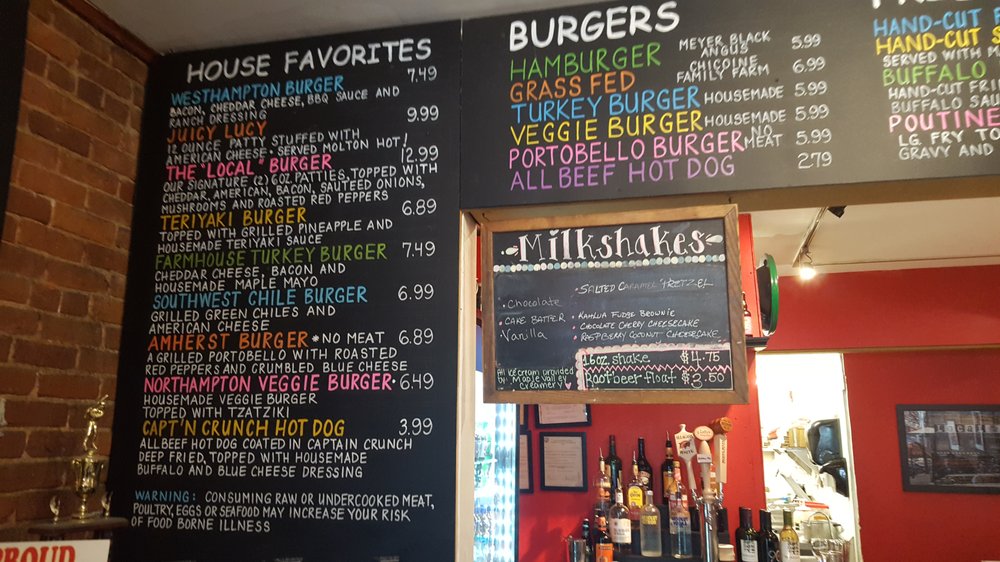 HOUSE FAVORITES
WESTHAMPTON BURGER 7.49
BACON, CHEDDAR CHEESE, BBQ SAUCE AND
RANCH DRESSING
JUICY LUCY 9.99
12 OUNCE PATTY STUFFED WITH
AMERICAN CHEESE • SERVED MOLTON HOT!
THE "LOCAL" BURGER 12.99
OUR SIGNATURE (2) 6OZ PATTIES, TOPPED WITH
CHEDDAR, AMERICAN, BACON, SAUTEED ONIONS,
MUSHROOMS AND ROASTED RED PEPPERS
TERIYAKI BURGER 6.89
TOPPED WITH GRILLED PINEAPPLE AND
HOUSEMADE TERIYAKI SAUCE
FARMHOUSE TURKEY BURGER 7.49
CHEDDAR CHEESE, BACON AND
HOUSEMADE MAPLE MAYO
SOUTHWEST CHILE BURGER 6.99
GRILLED GREEN CHILES AND
AMERICAN CHEESE
AMHERST BURGER *NO MEAT 6.89
A GRILLED PORTOBELLO WITH ROASTED
RED PEPPERS AND CRUMBLED BLUE CHEESE
NORTHAMPTON VEGGIE BURGER• 6.49
HOUSEMADE VEGGIE BURGER
TOPPED WITH TZATZIKI
CAPT'N CRUNCH HOT DOG 3.99
ALL BEEF HOT DOG COATED IN CAPTAIN CRUNCH
DEEP FRIED, TOPPED WITH HOUSEMADE
BUFFALO AND BLUE CHEESE DRESSING
WARNING: CONSUMING RAW OR UNDERCOOKED MEAT,
POULTRY, EGGS OR SEAFOOD MAY INCREASE YOUR RISK
OF FOOD BORNE ILLNESS
PROUD
BURGERS
HAMBURGER MEYER BLACK ANGUS 5.99
GRASS FED CHICOINE FAMILY FARM 6.99
TURKEY BURGER HOUSEMADE 5.99
VEGGIE BURGER HOUSEMADE 5.99
PORTOBELLO BURGER NO MEAT 5.99
ALL BEEF HOT DOG 2.79
HAND-CUT
HAND-CUT
SERVED WITH
BUFFALO
HAND-CUT FRI
BUFFALO SAU
POUTINE
LG. FRY TO
GRAVY AND
Milkshakes
• Chocolate
• CAKE BATTER
• Vanilla
• SALTED CARAMEL PRETZEL
• KAHLUA FUDGE BROWNIE
• CHOCOLATE CHERRY CHEESECAKE
• RASPBERRY COCONUT CHEESECAKE
16oz. shake $4.75
Rootbeer float $3.50
All icecream provided
by Maple Valley
Creamery